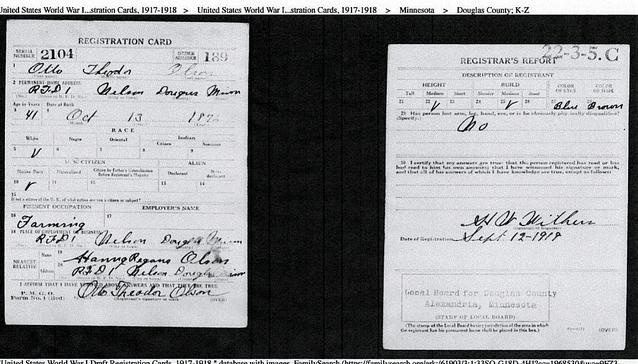 United States World War I...stration Cards, 1917-1918 > United States World War I...stration Cards, 1917-1918 > Minnesota > Douglas County; K-Z
REGISTRATION CARD
SERIAL NUMBER 2104 ORDER NUMBER 189
1 Otto Theodor Olson
2 PERMANENT HOME ADDRESS
RFD1 Nelson Douglas Minn
Age in Years Date of Birth
41 Oct 13
RACE
White Negro Oriental Indian
Citizen Noncitizen
5 V
U. S. CITIZEN ALIEN
Native Born Naturalized Citizen by Father's Naturalization Before Registrant's Majority Declarant
10 V
15
If not a citizen of the U. S., of what nation are you a citizen or subject?
PRESENT OCCUPATION EMPLOYER'S NAME
16 Farming 17
18 PLACE OF EMPLOYMENT OR BUSINESS
RFD1 Nelson Douglas Minn
NEAREST RELATIVE Name 19 Olson
Address 20 RFD1 Nelson Douglas Minn
I AFFIRM THAT I HAVE VERIFIED ABOVE ANSWERS AND THAT THEY ARE TRUE
P. M. G. O.
Form No. 1 (Red) Otto Theodor Olson
(Registrant's signature or mark) (OVER)
22-3-5. C
REGISTRAR'S REPORT
DESCRIPTION OF REGISTRANT
HEIGHT BUILD COLOR OF EYES COLOR OF HAIR
Tall Medium Short Slender Medium Stout
21 22 V 23 24 25 V 26 27 Blue 28 Brown
29 Has person lost arm, leg, hand, eye, or is he obviously physically disqualified?
(Specify.)
No
30 I certify that my answers are true; that the person registered has read or has
had read to him his own answers; that I have witnessed his signature or mark,
and that all of his answers of which I have knowledge are true, except as follows:
Date of Registration Sept 12-1918
Local Board for Douglas County
Alexandria, Minnesota
(STAMP OF LOCAL BOARD)
(The stamp of the Local Board having jurisdiction of the area in which the
registrant has his permanent home shall be placed in this box.) (OVER)